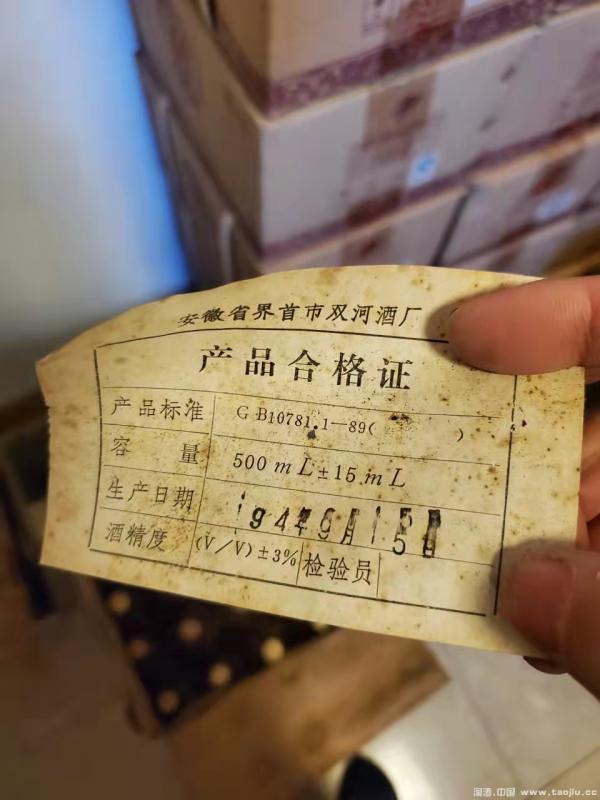 安徽省界首市双河酒厂
产品合格证
产品标准 GB10781.1-89( )
容量 500mL±15mL
生产日期
酒精度 (V/V)±3% 检验员
淘酒.中国 www.taojiu.cc